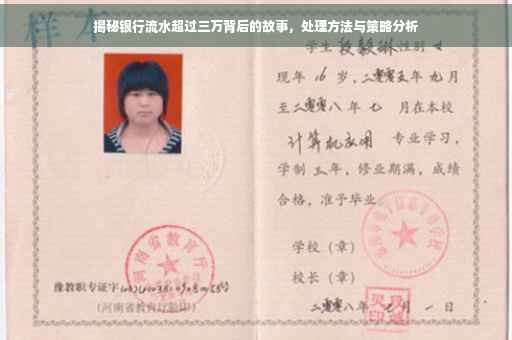 揭秘银行流水超过三万背后的故事，处理方法与策略分析
样本
学生段毅琳性别女
现年16岁，二零零五年九月
至二零零八年七月在本校
计算机应用专业学习，
学制三年，修业期满，成绩
合格，准予毕业。
学校（章）
校长（章）
豫教职专证字
（河南省教育厅验印）
二零零八年七月一日
河南省教育厅